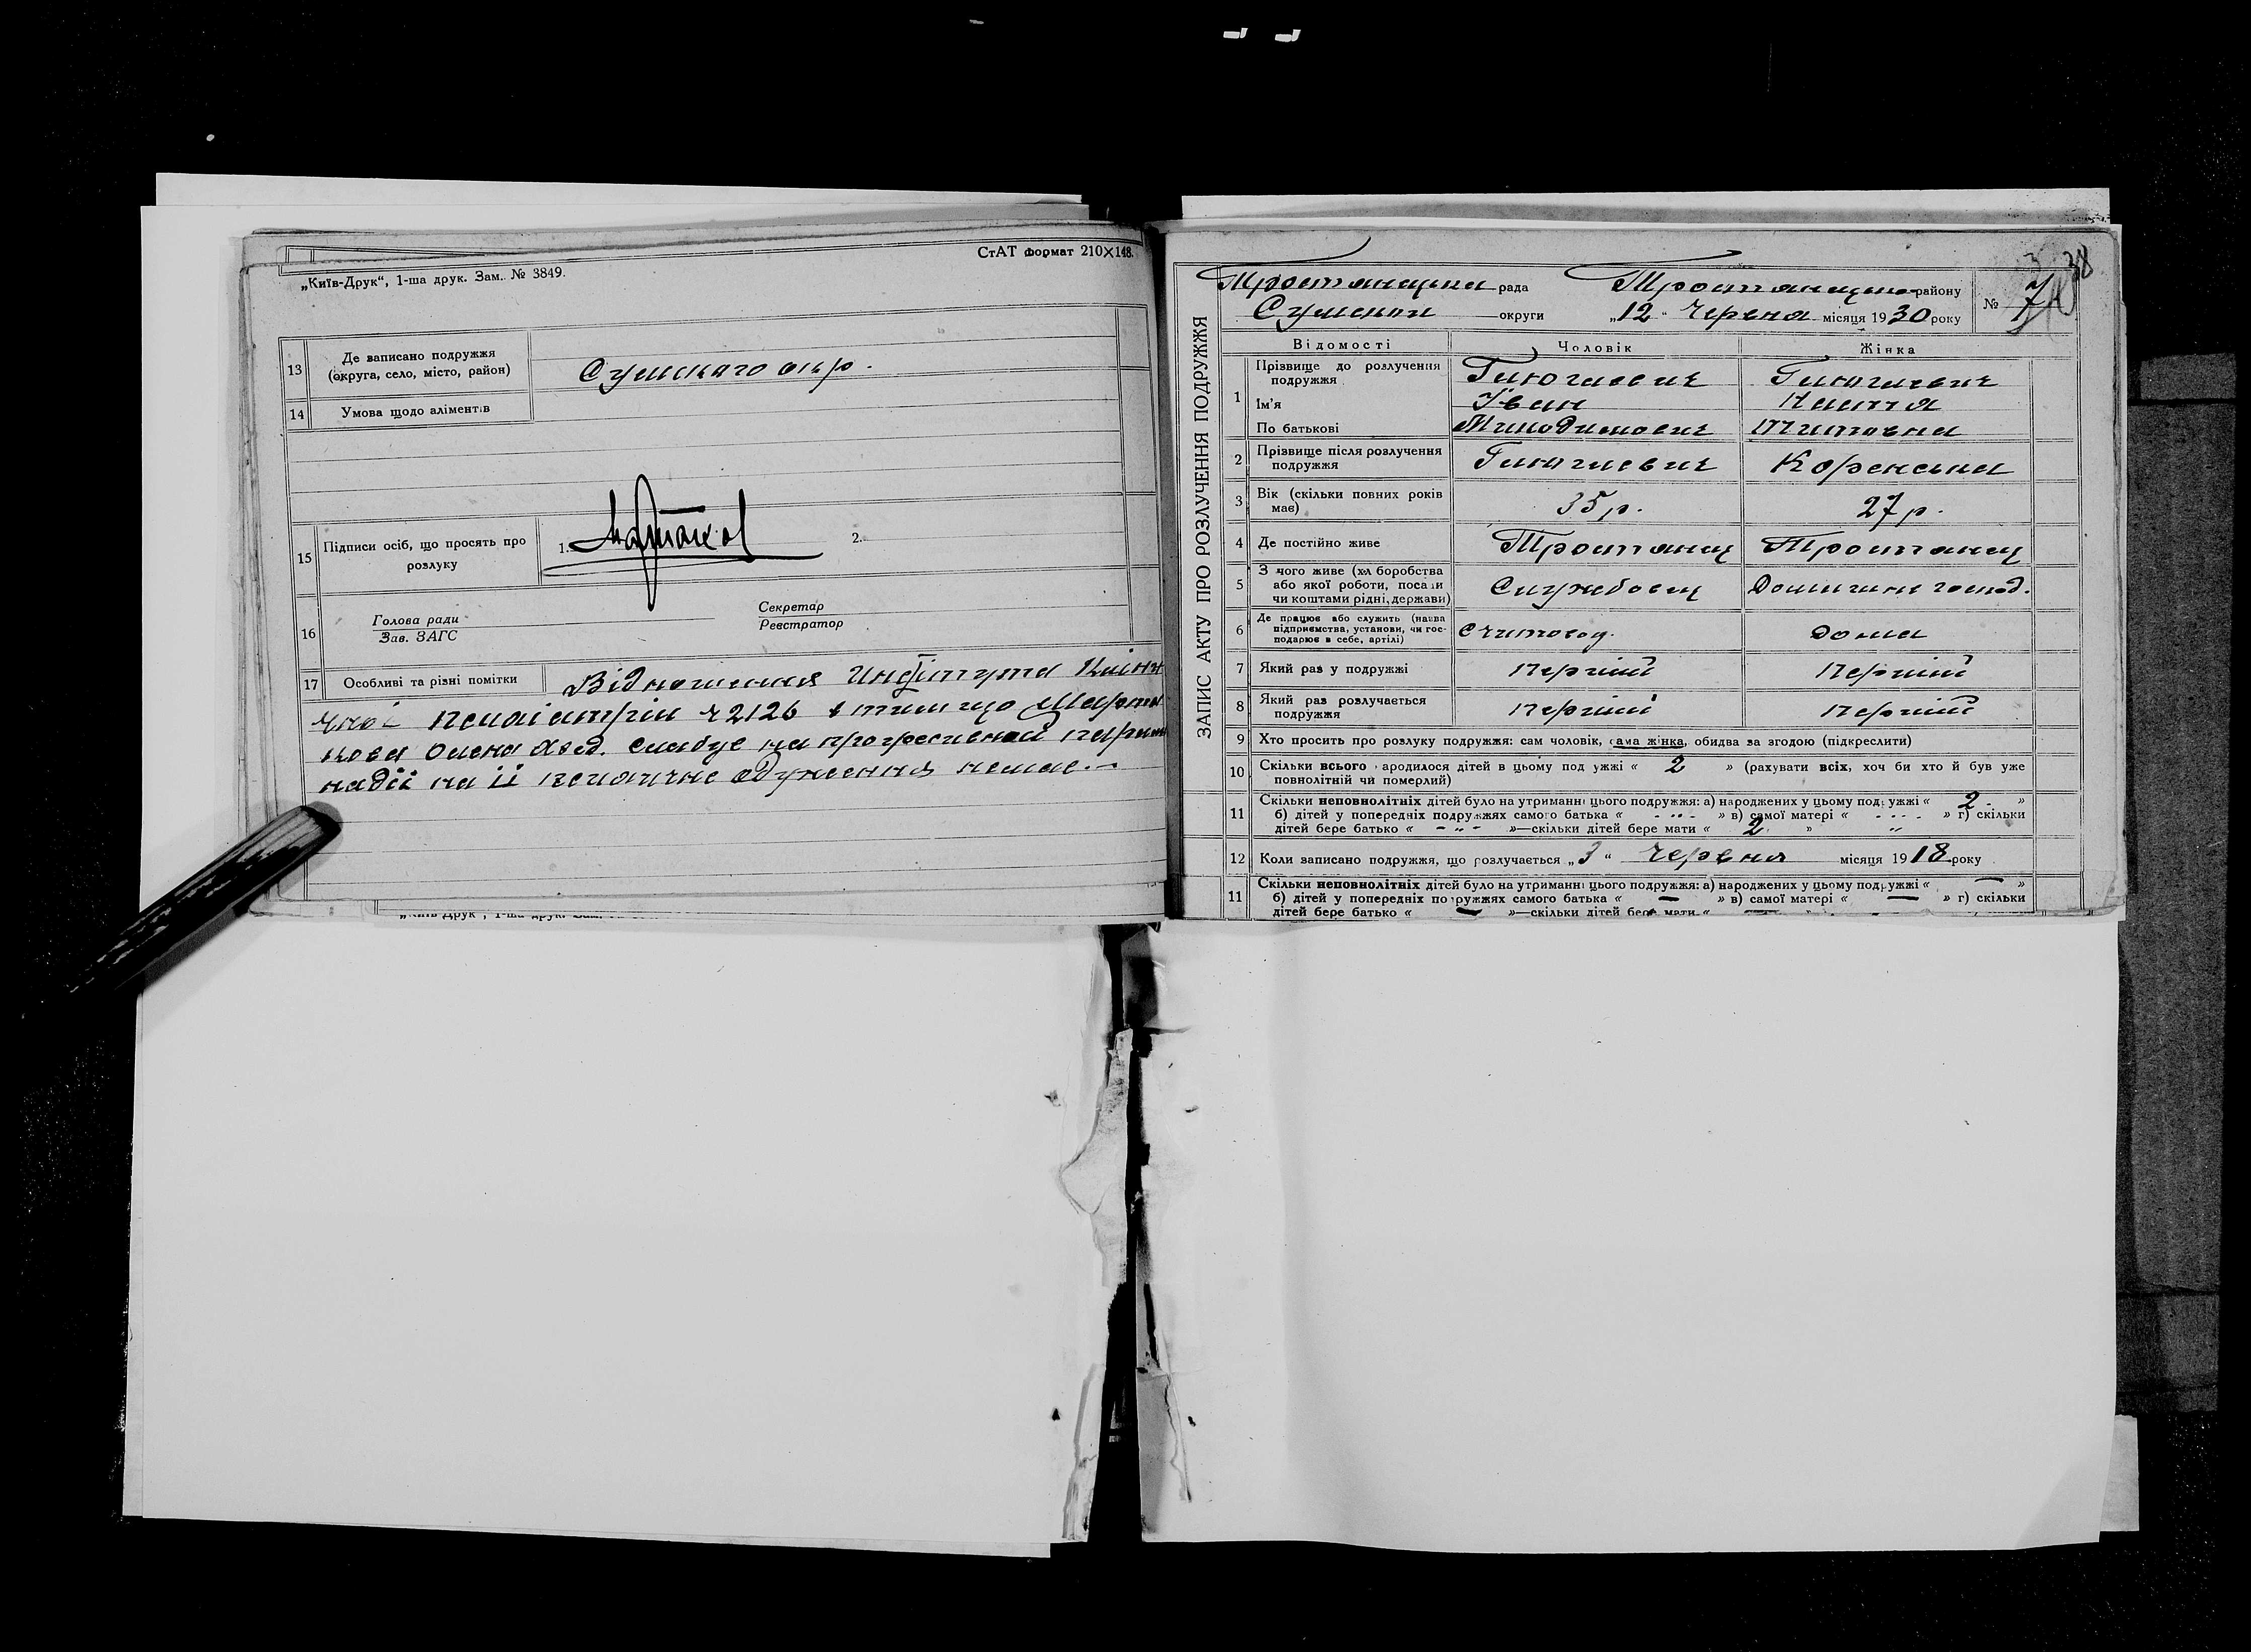 СтАТ формат 210×148.
„Київ-Друк“, 1-ша друк. Зам. № 3849.
13 Де записано подружжя (округа, село, місто, район) Сумскаго окр.
14 Умова щодо аліментів
15 Підписи осіб, що просять про розлуку 1. 2.
16 Голова ради Зав. ЗАГС Секретар Реєстратор
17 Особливі та різні помітки Відношення Инстітута Клінi
чної Псіхіатрії ч 2126 в тим що Март
кова Олена слабує на прогресивной
надії на її псіхичне одужання немає.-
ЗАПИС АКТУ ПРО РОЗЛУЧЕННЯ ПОДРУЖЖЯ
38
Тростянецька рада Тростянецьк району
Сумской округи „12“ Червня місяця 1930 року № 7
Відомості Чоловік Жінка
1 Прізвище до розлучення подружжя
Ім'я Іван Настя
По батькові Титовна
2 Прізвище після розлучення подружжя Коренська
3 Вік (скільки повних років має) 35 р. 27 р.
4 Де постійно живе Тростянец Тростянец
5 З чого живе (хліборобства або якої роботи, посади чи коштами рідні, держави) Службовец Домашни господ.
6 Де працює або служить (назва підприємства, установи, чи господарює в себе, артілі) Считовод. дома
7 Який раз у подружжі перший перший
8 Який раз розлучається подружжя перший перший
9 Хто просить про розлуку подружжя: сам чоловік, сама жінка, обидва за згодою (підкреслити)
10 Скільки всього народилося дітей в цьому подружжі « 2 » (рахувати всіх, хоч би хто й був уже
повнолітній чи померлий)
11 Скільки неповнолітніх дітей було на утриманні цього подружжя: а) народжених у цьому подружжі « 2 »
б) дітей у попередніх подружжях самого батька « -„- » в) самої матері « -„- » г) скільки
дітей бере батько « -„- »—скільки дітей бере мати « 2 »
12 Коли записано подружжя, що розлучається „3“ Червня місяця 1918 року
11 Скільки неповнолітніх дітей було на утриманні цього подружжя: а) народжених у цьому подружжі « — »
б) дітей у попередніх подружжях самого батька « — » в) самої матері « — » г) скільки
дітей бере батько « — »—скільки дітей бере мати « —